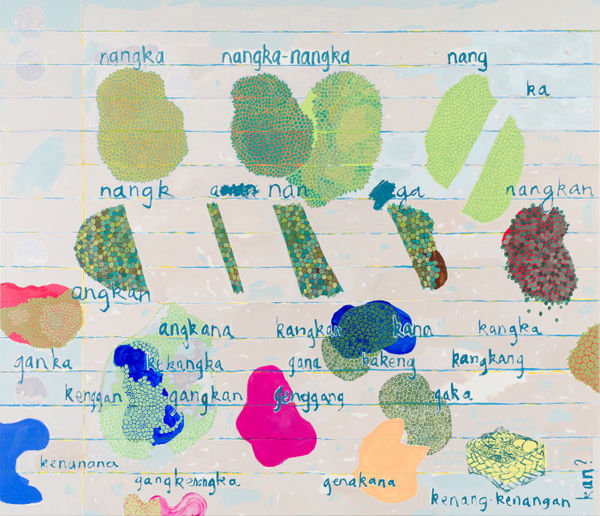 nangka nangka-nangka nang
ka
nangk nan ga nangkan
angkan
angkana kangkan kana kangka
ganka kangka gana bakeng kangkang
kenggan gangkan genggang gaka
kenanana
gangkenangka genakana
kenang-kenangan
kan?